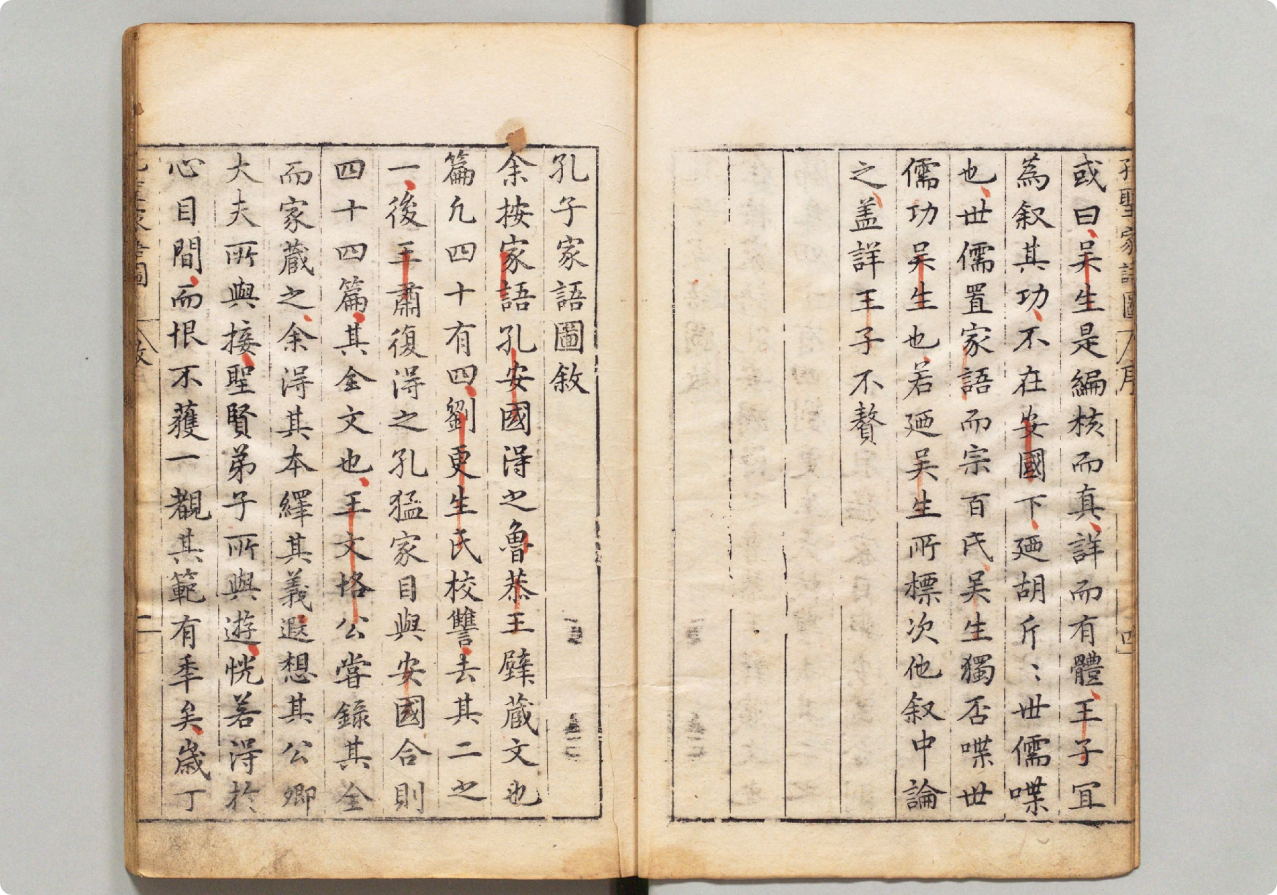 或曰吴生是編核而真詳而有體王子宜
為叙其功不在安國下廼胡斤〻世儒喋
也世儒置家語而宗百氏吴生獨否喋世
儒功吴生也若廼吴生所標次他叙中論
之盖詳王子不贅
孔子家語圖敘
余按家語孔安國淂之魯恭王壁蔵文也
篇凢四十有四劉更生氏校讐去其二之
一後王肅復淂之孔猛家目與安國合則
四十四篇其全文也王文恪公甞錄其全
而家蔵之余淂其本繹其義遐想其公卿
大夫所與接聖賢弟子所與遊恍若淂於
心目間而恨不蒦一覩其範有秊矣歲丁
孔聖家語圖
序
四
敘
一